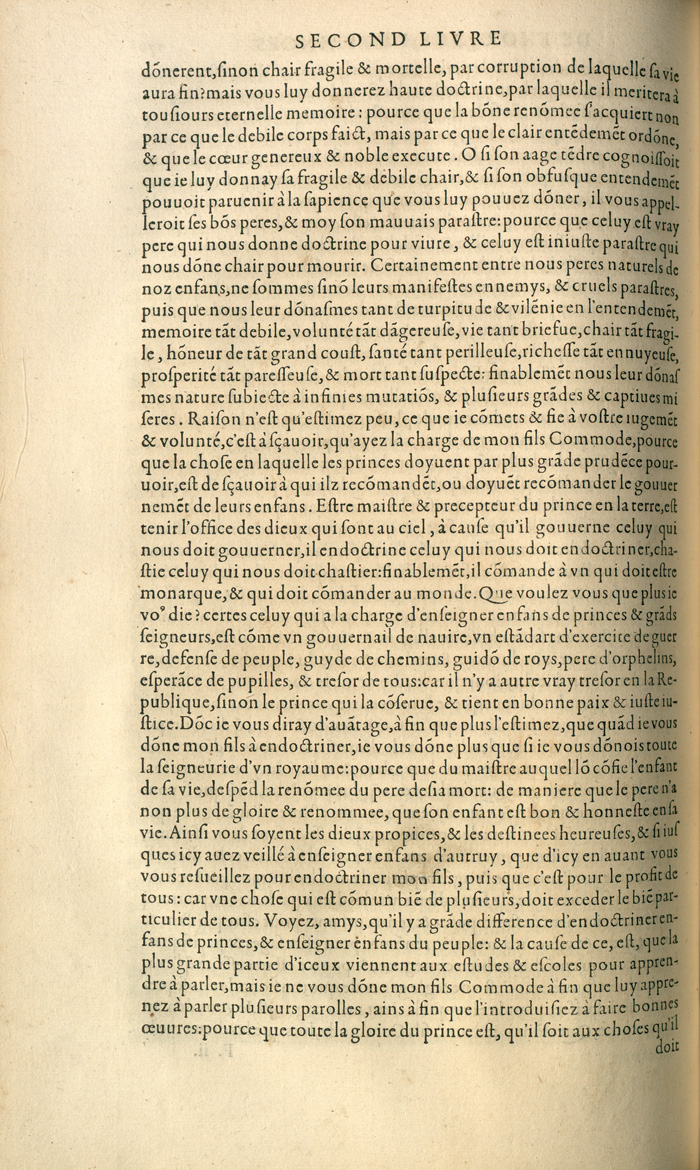 SECOND LIVRE
dōnerent,ſinon chair fragile & mortelle, par corruption de laquelle ſa vie
aura fin?mais vous luy donnerez haute doctrine,par laquelle il meritera à
touſiours eternelle memoire : pource que la bōne renōmee ſ'acquiert non
par ce que le debile corps faict, mais par ce que le clair entēdemēt ordōne,
& que le cœur genereux & noble execute . O ſi ſon aage tēdre cognoiſſoit
que ie luy donnay ſa fragile & debile chair,& ſi ſon obfuſque entendemēt
pouuoit paruenir à la ſapience que vous luy pouuez dōner, il vous appel-
leroit ſes bōs peres,& moy ſon mauuais paraſtre:pource que celuy eſt vray
pere qui nous donne doctrine pour viure , & celuy eſt iniuſte paraſtre qui
nous dōne chair pour mourir. Certainement entre nous peres naturels de
noz enfans,ne ſommes ſinō leurs manifeſtes ennemys, & cruels paraſtres,
puis que nous leur dōnaſmes tant de turpitude & vilēnie en l'entendemēt,
memoire tāt debile,volunté tāt dāgereuſe,vie tant briefue,chair tāt fragi-
le , hōneur de tāt grand couſt, ſanté tant perilleuſe,richeſſe tāt ennuyeuſe,
proſperité tāt pareſſeuſe, & mort tant ſuſpecte: finablemēt nous leur dōnaſ
mes nature ſubiecte à infinies mutatiōs, & pluſieurs grādes & captiues mi
ſeres . Raiſon n'eſt qu'eſtimez peu, ce que ie cōmets & fie à voſtre iugemēt
& volunté,c'eſt à ſçauoir,qu'ayez la charge de mon fils Commode,pource
que la choſe en laquelle les princes doyuent par plus grāde prudēce pour-
uoir,eſt de ſçauoir à qui ilz recōmandēt,ou doyuēt recōmander le gouuer
nemēt de leurs enfans . Eſtre maiſtre & precepteur du prince en la terre,eſt
tenir l'office des dieux qui ſont au ciel , à cauſe qu'il gouuerne celuy qui
nous doit gouuerner,il endoctrine celuy qui nous doit endoctriner,cha-
ſtie celuy qui nous doit chaſtier:finablemēt,il cōmande à vn qui doit eſtre
monarque,& qui doit cōmander au monde. Que voulez vous que plus ie
voꝰ die ? certes celuy qui a la charge d'enſeigner enfans de princes & grāds
ſeigneurs,eſt cōme vn gouuernail de nauire,vn eſtādart d'exercite de guer
re,defenſe de peuple, guyde de chemins, guidō de roys,pere d'orphelins,
eſperāce de pupilles, & treſor de tous:car il n'y a autre vray treſor en la Re-
publique,ſinon le prince qui la cōſerue, & tient en bonne paix & iuſte iu-
ſtice.Dōc ie vous diray d'auātage,à fin que plus l'eſtimez,que quād ie vous
dōne mon fils à endoctriner,ie vous dōne plus que ſi ie vous dōnois toute
la ſeigneurie d'vn royaume:pource que du maiſtre auquel lō cōfie l'enfant
de ſa vie,deſpēd la renōmee du pere deſia mort: de maniere que le pere n'a
non plus de gloire & renommee, que ſon enfant eſt bon & honneſte en ſa
vie. Ainſi vous ſoyent les dieux propices,& les deſtinees heureuſes,& ſi iuſ
ques icy auez veillé à enſeigner enfans d'autruy , que d'icy en auant vous
vous reſueillez pour endoctriner mon fils , puis que c'eſt pour le profit de
tous : car vne choſe qui eſt cōmun biē de pluſieurs,doit exceder le biē par-
ticulier de tous. Voyez, amys,qu'il y a grāde difference d'endoctriner en-
fans de princes,& enſeigner enfans du peuple: & la cauſe de ce, eſt, que la
plus grande partie d'iceux viennent aux eſtudes & eſcoles pour appren-
dre à parler,mais ie ne vous dōne mon fils Commode à fin que luy appre-
nez à parler pluſieurs parolles , ains à fin que l'introduiſiez à faire bonnes
œuures:pource que toute la gloire du prince eſt, qu'il ſoit aux choſes qu'il
doit